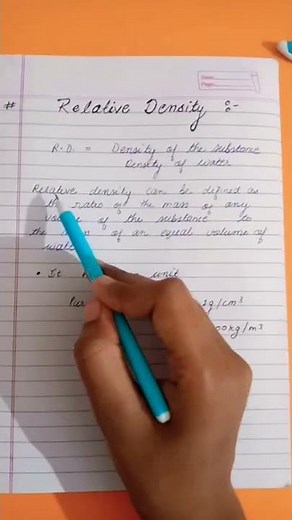 # Relative Density :-
R.D. = Density of the substance
Density of water
Relative density can be defined as
the ratio of the mass of any
of the substance to
the of an equal volume of
• It unit
g/cm³
kg/m³